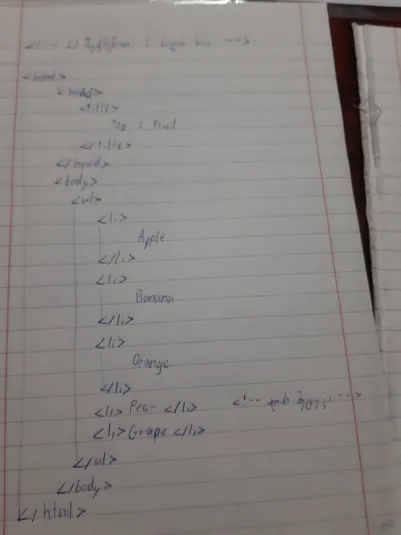 <!-- 5 -->
<html>
<head>
<title>
5
</title>
</head>
<body>
<ul>
<li>
Apple
</li>
<li>
Banana
</li>
<li>
Orange
</li>
<li> Pear </li> <!-- -->
<li> Grape </li>
</ul>
</body>
</html>